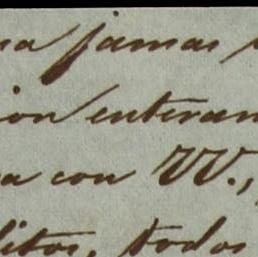 na jamas
ion enteram
a con VV.,
litos, todos